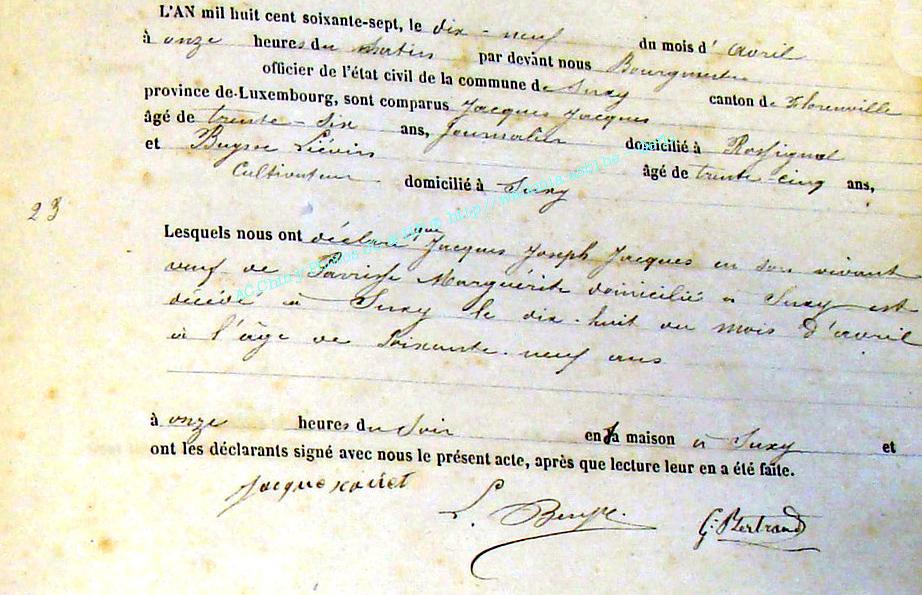 L'AN mil huit cent soixante-sept, le dix-neuf du mois d'avril
à onze heures du matin par devant nous Bourgmestre
officier de l'état civil de la commune de Suxy canton de Florenville
province de Luxembourg, sont comparus Jacques Jacques
âgé de trente-six ans, journalier domicilié à Rossignol
et Buysse Liévin âgé de trente-cinq ans,
Cultivateur domicilié à Suxy
23
Lesquels nous ont déclaré que Jacques Joseph Jacques en son vivant
veuf de Marguérite domicilié à Suxy est
décédé à Suxy le dix-huit du mois d'avril
à l'âge de soixante-neuf ans
à onze heures du soir en sa maison à Suxy et
ont les déclarants signé avec nous le présent acte, après que lecture leur en a été faite.
L. Buysse. G. Bertrand
AC Chiny